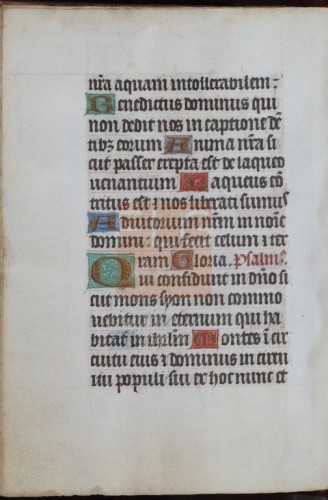 nr̃a aquam intollerabilem:
Benedictus dominus qui
non dedit nos in captione dẽ
tibꝫ eorum Anima nr̃a si
cut passer erepta est de laqueo
uenantium Laqueus cõ
tritus est ⁊ nos liberati sumus
Adiutorium nr̃m in noĩe
domini: qui fecit celum ⁊ ter
ram Gloria. Psalmꝰ
Qui confidunt in dño si
cut mons syon non commo
uebitur in eternum qui ha
bitat in ihrl̃m Montes ĩ cir
cuitu eius ⁊ dominus in circu
itu populi sui ex hoc nunc et